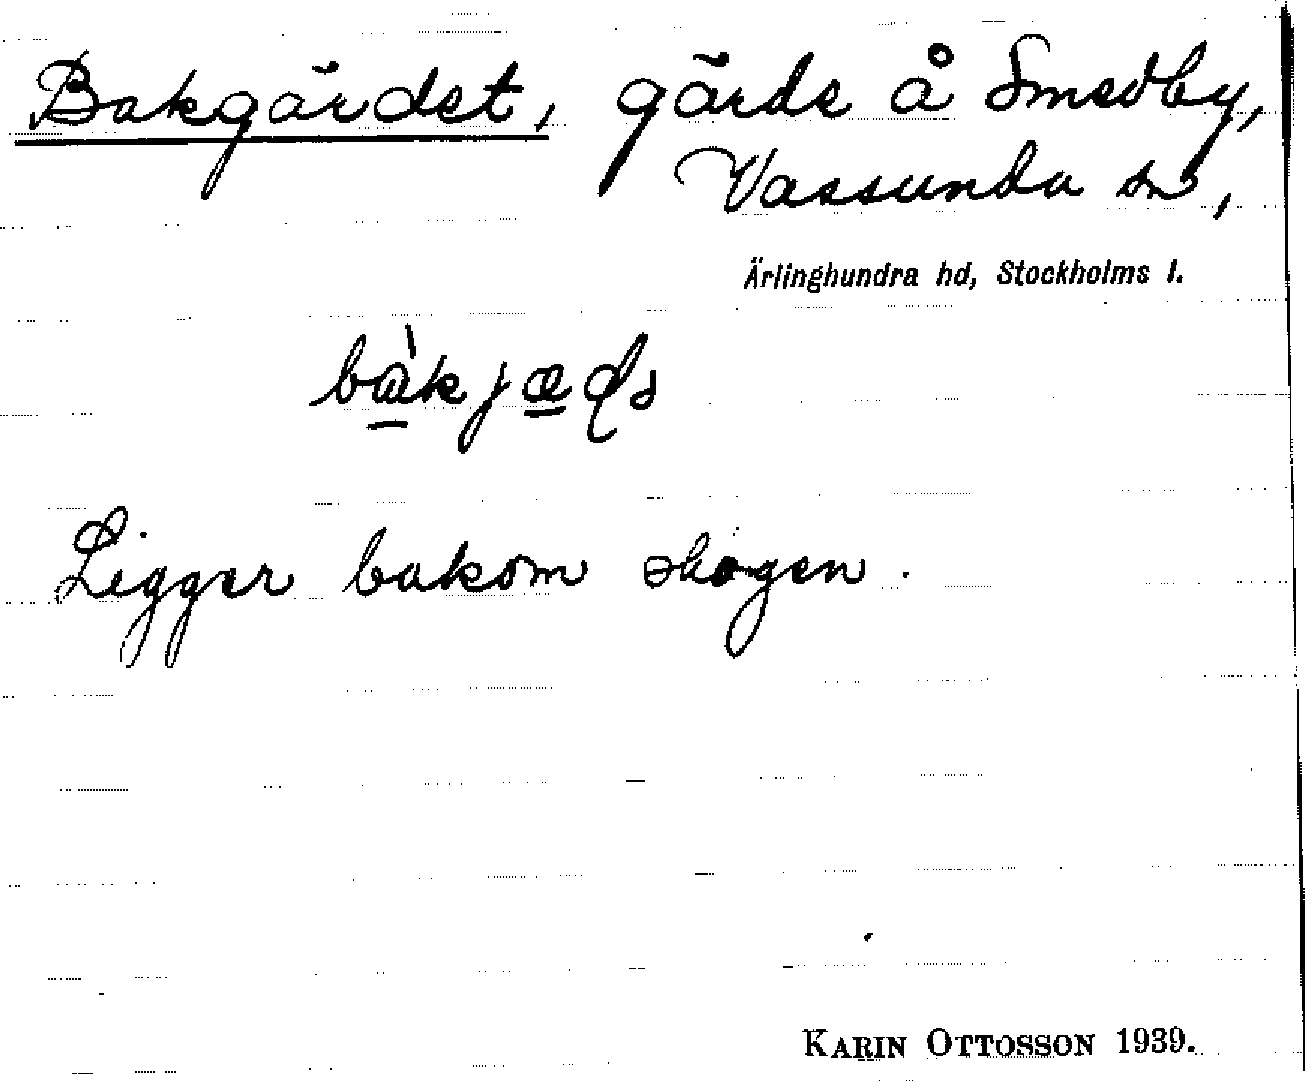 Bakgärdet, gärde å Smedby,
Vassunda sn,
Ärlinghundra hd, Stockholms l.
Ligger bakom skogen.
KARIN OTTOSSON 1939.